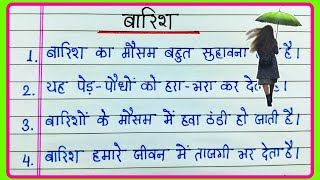 बारिश
1. बारिश का मौसम बहुत सुहावना है।
2. यह पेड़-पौधों को हरा-भरा कर
3. बारिशों के मौसम में हवा ठंडी हो जाती है।
4. बारिश हमारे जीवन में ताजगी भर देता है।